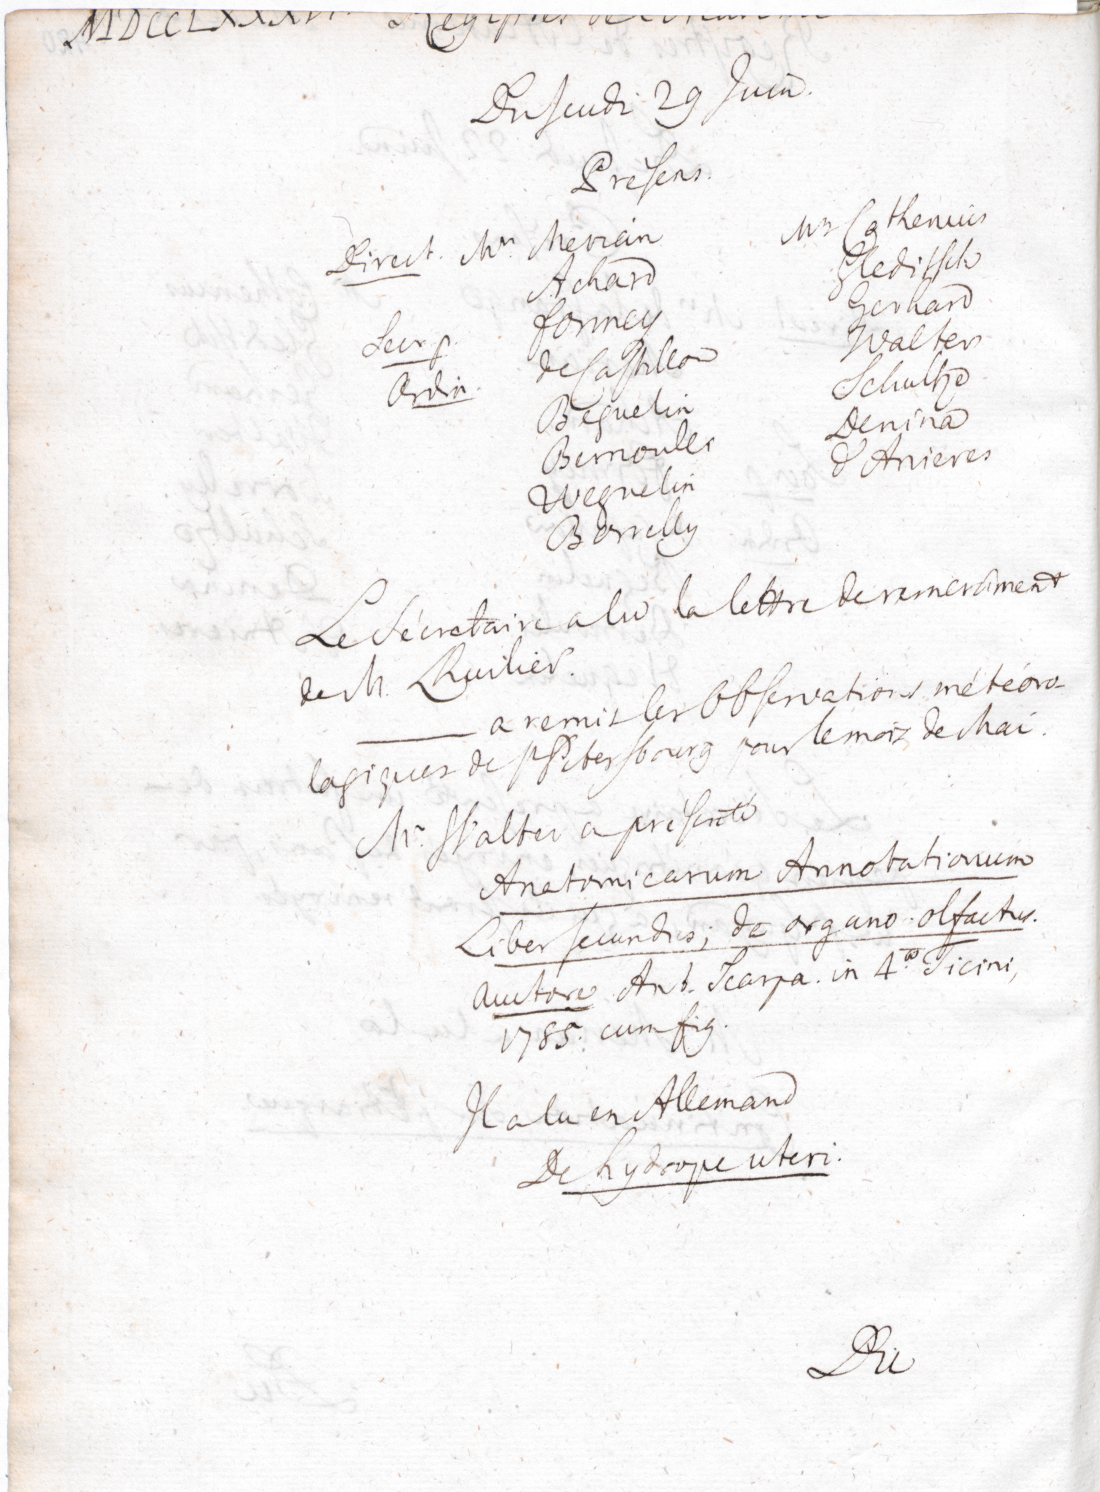 MDCCLXXXVI. Registres de l'Académie
Du Jeudi 29 Juin.
Présens.
Direct. Mrs. Merian
Achard
Secr. p. Formey
Ordin. de Castillon
Beguelin
Bernoulli
Weguelin
Borrelly
Mrs Cothenius
Gleditsch
Gerhard
Walter
Schultze
Denina
d'Anieres
Le Sécretaire a lu la lettre de remerciment
de M. Lhuilier.
——— a remis les Observations météoro-
logiques de St Pétersbourg pour le mois de Mai.
Mr. Walter a présenté
Anatomicarum Annotationum
Liber secundus; de organo olfactus.
Auctore Ant. Scarpa. in 4.to Ticini,
1785. cum fig.
Il a lu en Allemand
De hydrope uteri.
Du